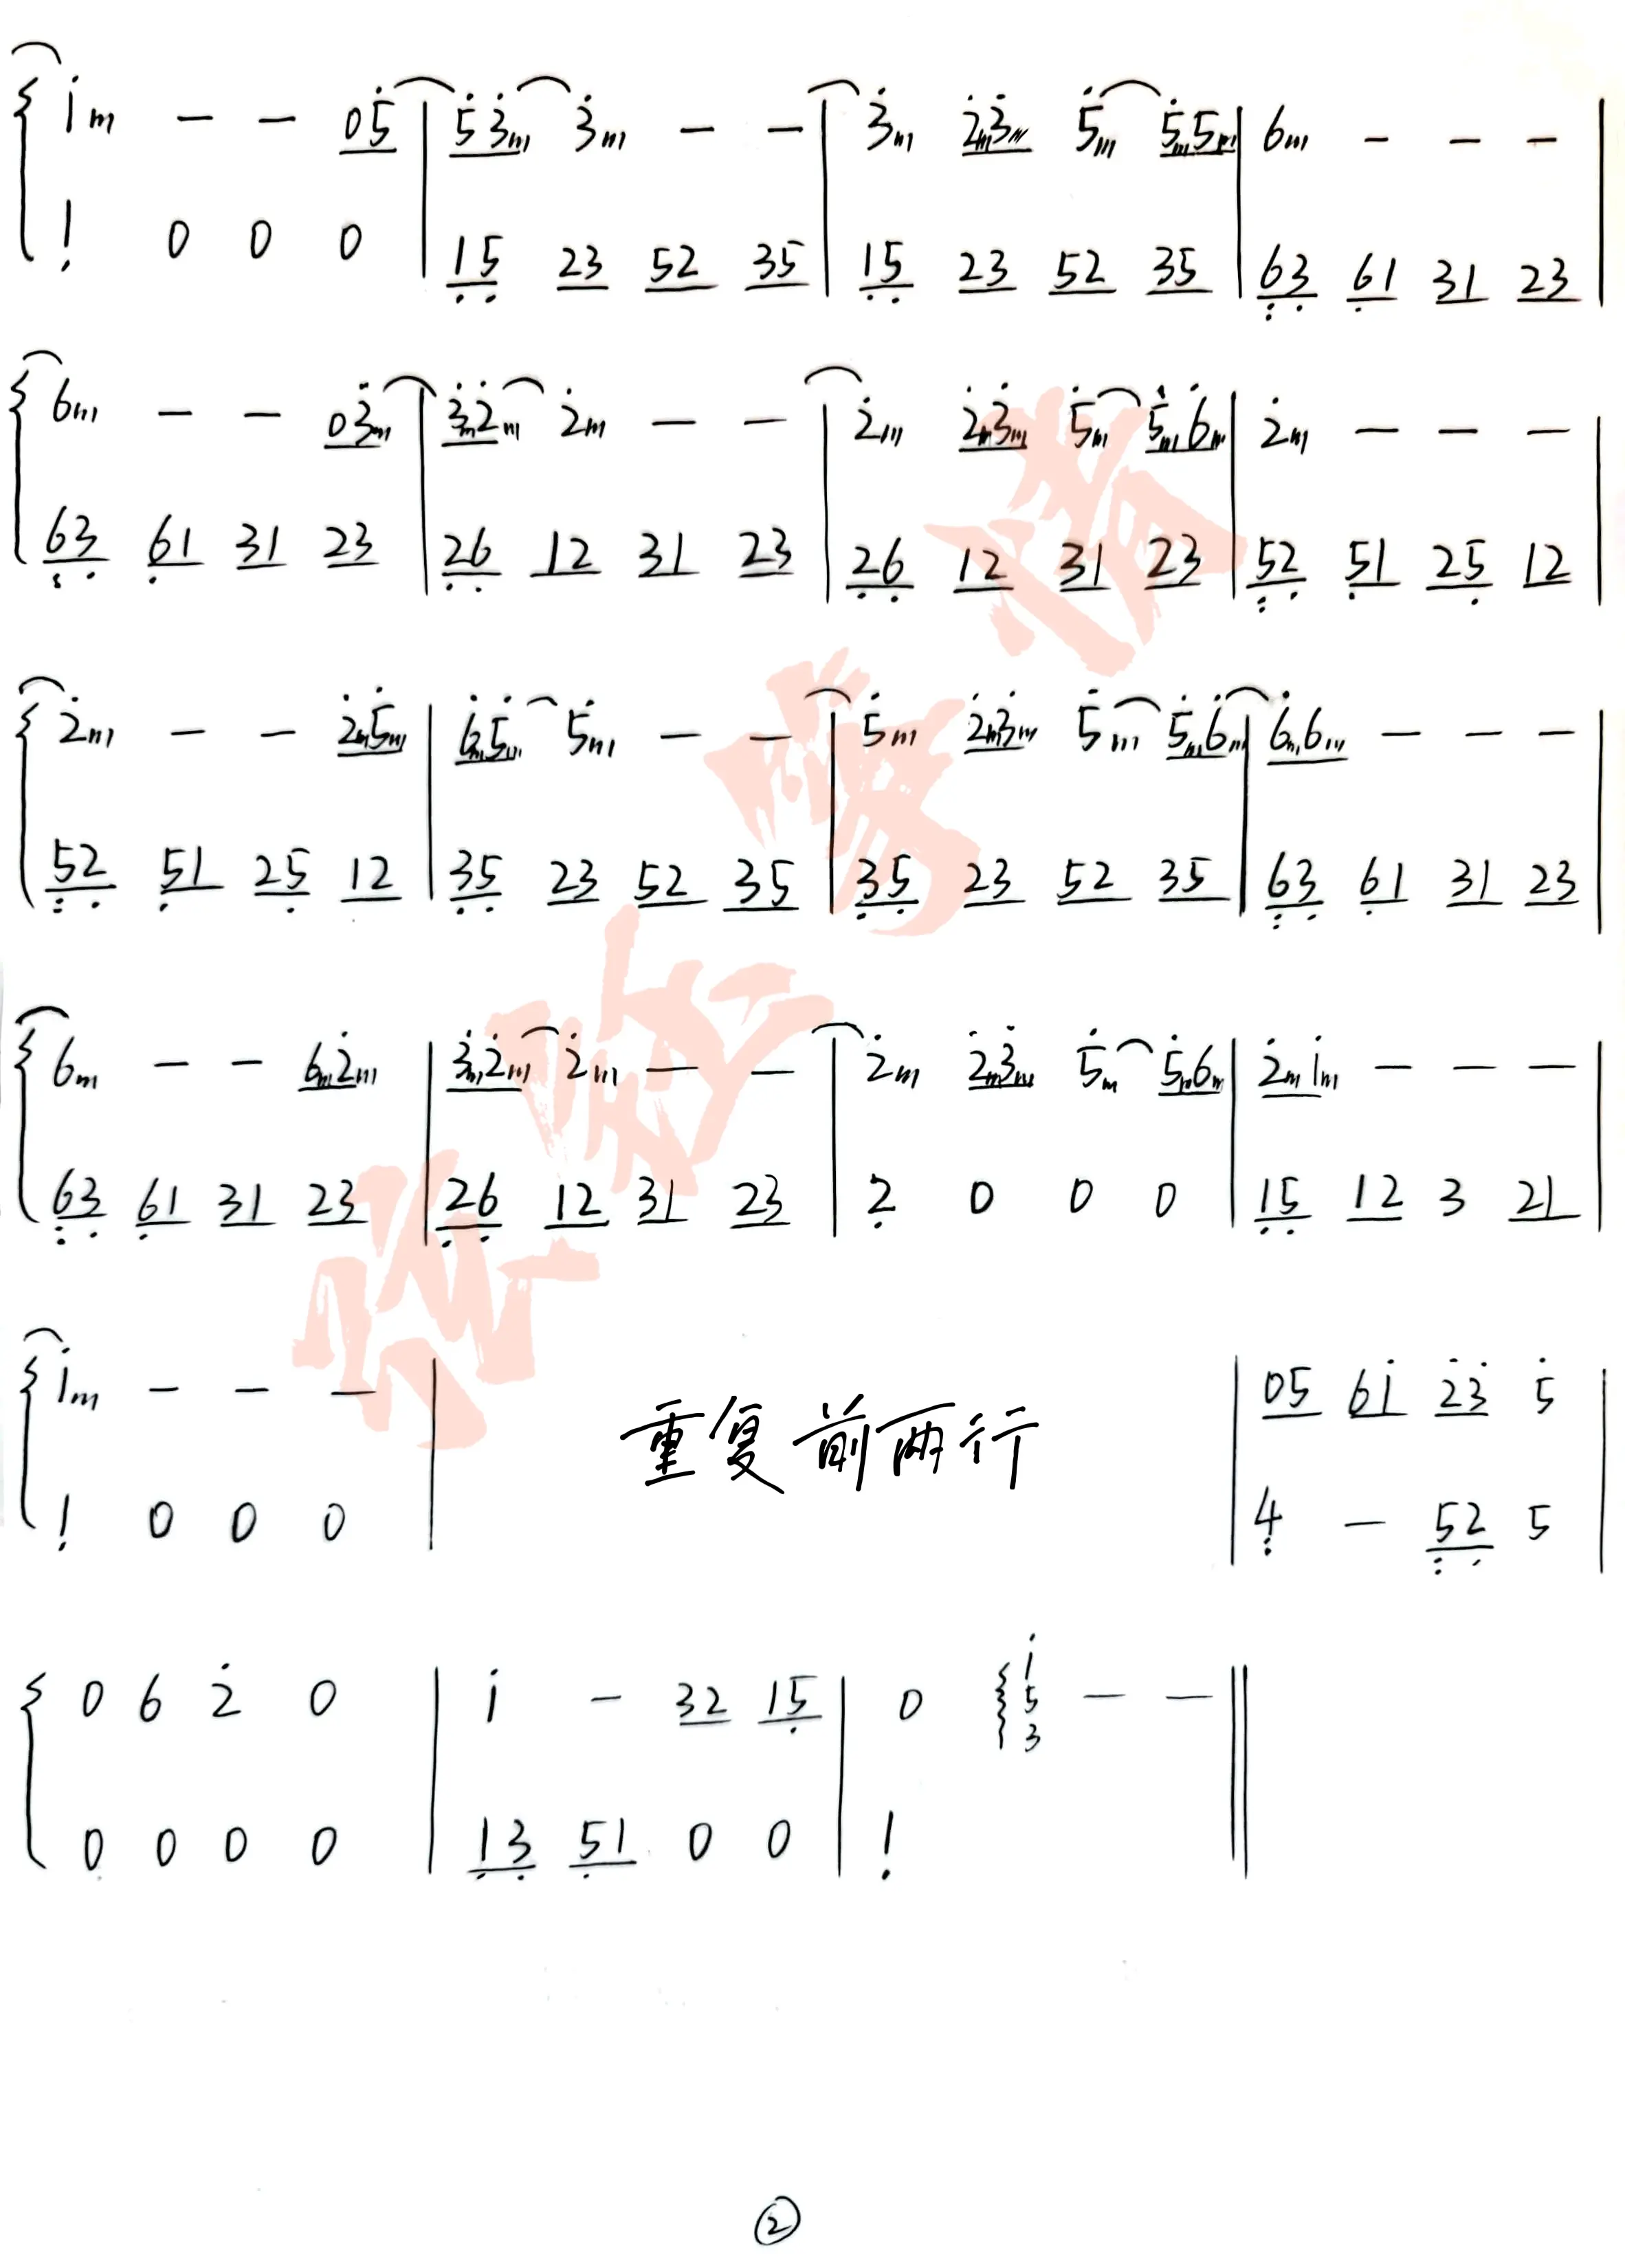 1m - - 05 | 53m 3m - - | 3m 2m3m 5m 5m5m | 6m - - - |
1 0 0 0 | 15 23 52 35 | 15 23 52 35 | 63 61 31 23 |
6m - - 03m | 3m2m 2m - - | 2m 2m3m 5m 5m6m | 2m - - - |
63 61 31 23 | 26 12 31 23 | 26 12 31 23 | 52 51 25 12 |
2m - - 2m5m | 6m5m 5m - - | 5m 2m3m 5m 5m6m | 6m6m - - - |
52 51 25 12 | 35 23 52 35 | 35 23 52 35 | 63 61 31 23 |
6m - - 6m2m | 3m2m 2m - - | 2m 2m3m 5m 5m6m | 2m1m - - - |
63 61 31 23 | 26 12 31 23 | 2 0 0 0 | 15 12 3 21 |
1m - - - | 重复前两行 | 05 61 23 5 |
1 0 0 0 | | 4 - 52 5 |
0 6 2 0 | 1 - 32 15 | 0 1 5 3 - - ||
0 0 0 0 | 13 51 0 0 | 1 ||
②